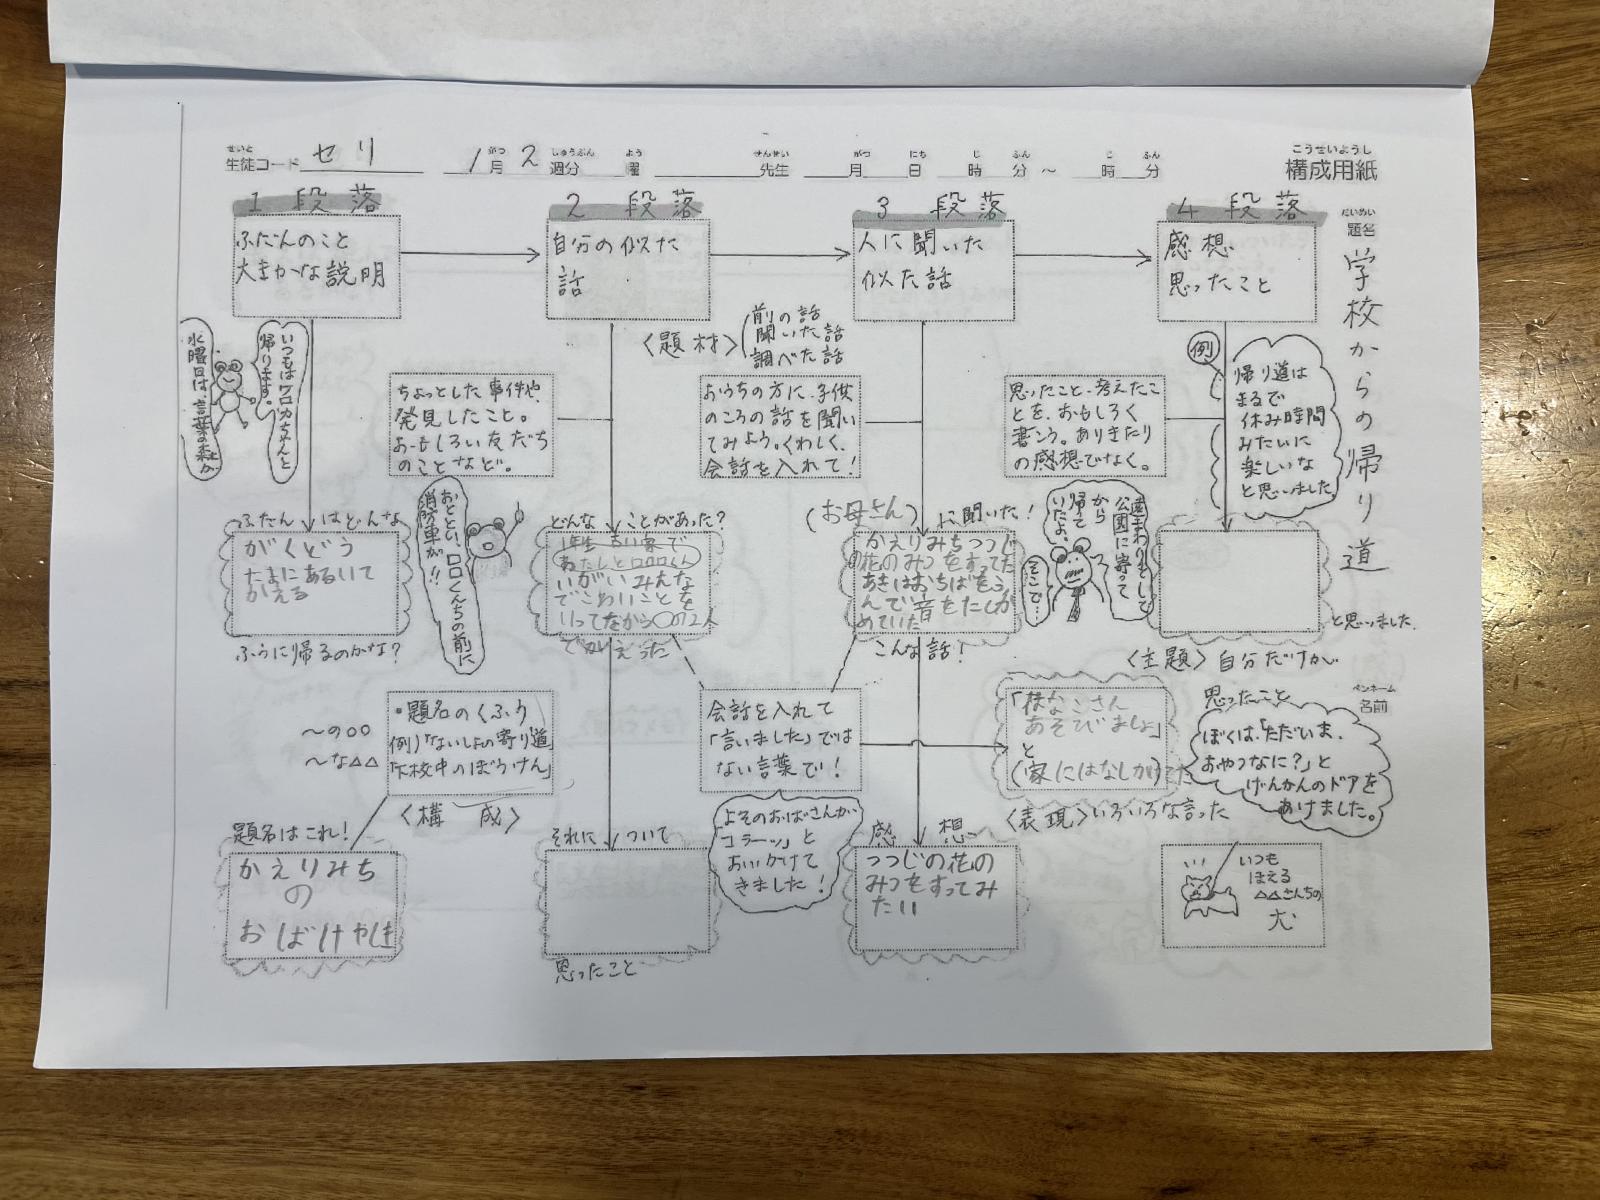 せいと がつ しゅうぶん よう せんせい がつ にち じ ふん じ ふん
生徒コード セリ 1月2週分 曜 先生 月 日 時 分 ～ 時 分
こうせいようし
構成用紙
だいめい
題名
学校からの帰り道
1 段落
ふだんのこと
大まかな説明
2 段落
自分の似た
話
3 段落
人に聞いた
似た話
4 段落
感想
思ったこと
いつもはワロカちゃんと
帰ります。
水曜日は、言葉の森か
〈題材〉
前の話
聞いた話
調べた話
ちょっとした事件や、
発見したこと。
おもしろい友だち
のことなど。
おうちの方に、子供
のころの話を聞い
てみよう。くわしく、
会話を入れて!
思ったこと、考えたこ
とを、おもしろく
書こう。ありきたり
の感想でなく。
例
帰り道は
まるで
休み時間
みたいに
楽しいな
と思いました。
ふだんはどんな
がくどう
たまにあるいて
かえる
ふうに帰るのかな?
おととい、ロロくんちの前に
消防車が!!
どんなことがあった?
1年生
わたしとロロロくん
いがいみんな
でこわいことを
いってながら〇の2人
でかえった
(お母さん)に聞いた!
かえりみちつつじ
花のみつをすってた
あきはおちばをふ
んで音をたしか
めていた
こんな話!
遠まわりをして
公園に寄って
から
帰って
いたよ。
そこで…
と思いました。
〈主題〉自分だけが
思ったこと
ペンネーム
名前
～の〇〇
～な△△
・題名のくふう
例)「ないしょの寄り道」
「下校中のぼうけん」
〈構 成〉
会話を入れて
「言いました」では
ない言葉で!
「はなこさん
あそびましょ」
と
(家にはなしかけてた
〈表現〉いろいろな言った
ぼくは、「ただいま、
おやつなに?」と
げんかんのドアを
あけました。
題名はこれ!
かえりみち
の
おばけやしき
それについて
思ったこと
よそのおばさんが
「コラーッ」と
おいかけて
きました!
感想
つつじの花の
みつをすってみ
たい
いつも
ほえる
△△さんちの
犬